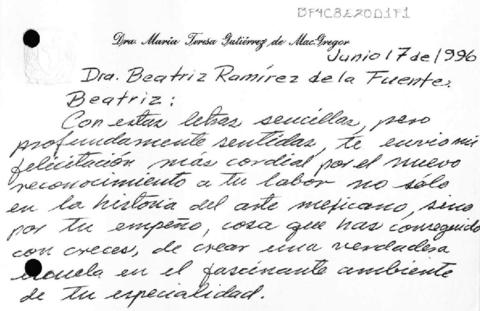 BF4C8E20D1F1
Dra. María Teresa Gutiérrez de MacGregor
Junio 17 de 1996
Dra. Beatriz Ramírez de la Fuente.
Beatriz:
Con estas letras sencillas, pero
profundamente sentidas, te envío mi
felicitación más cordial por el nuevo
reconocimiento a tu labor no sólo
en la historia del arte mexicano, sino
por tu empeño, cosa que has conseguido
con creces, de crear una verdadera
escuela en el fascinante ambiente
de tu especialidad.